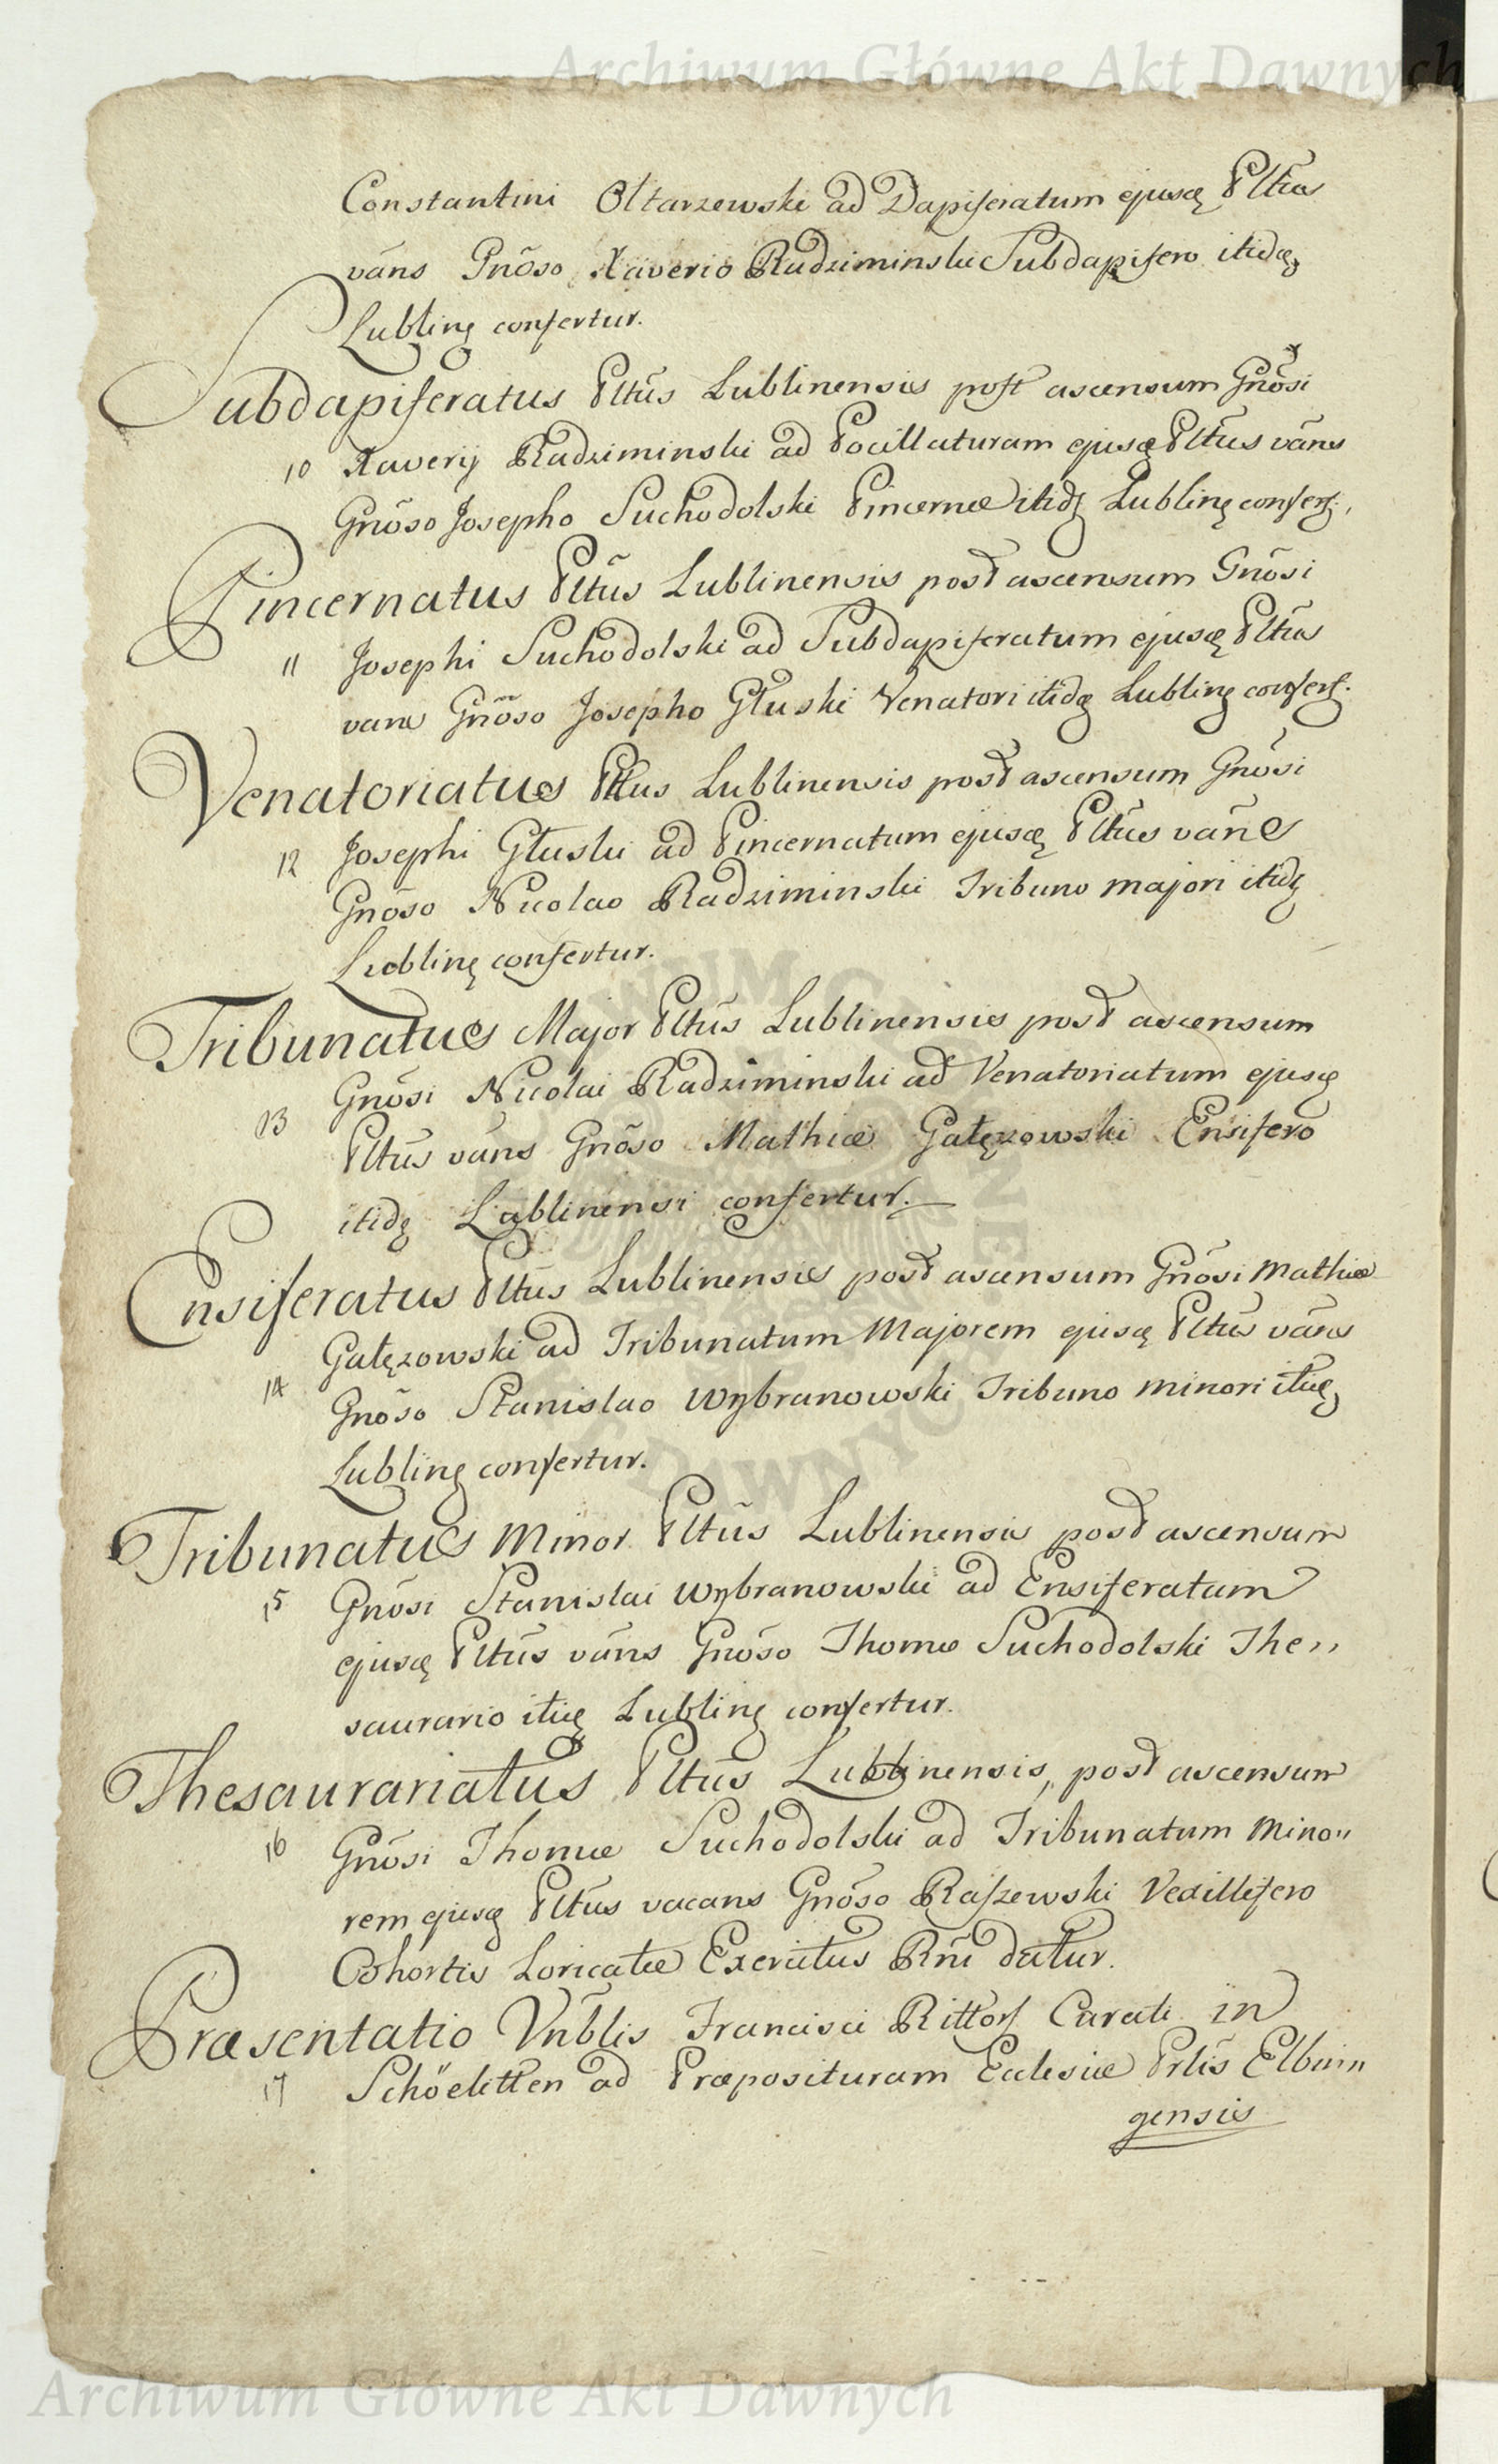 Archiwum Główne Akt Dawnych
Constantini Ołtarzewski ad Dapiferatum ejusdę Pltūs
vāns Gnōso Xaverio Radziminski Subdapifero itidę
Lublinę confertur.
Subdapiferatus Pltūs Lublinensis post ascensum Gnōsi
10 Xaverij Radziminski ad Pocillaturam ejusdę Pltūs vāns
Gnōso Josepho Suchodolski Pincernæ itidę Lublinę confert.
Pincernatus Pltūs Lublinensis post ascensum Gnōsi
11 Josephi Suchodolski ad Subdapiferatum ejusdę Pltūs
vans Gnōso Josepho Głuski Venatori itidę Lublinę confert.
Venatoriatus Pltus Lublinensis post ascensum Gnōsi
12 Josephi Głuski ad Pincernatum ejusdę Pltūs vāns
Gnōso Nicolao Radziminski Tribuno majori itidę
Lublinę confertur.
Tribunatus Major Pltūs Lublinensis post ascensum
13 Gnōsi Nicolai Radziminski ad Venatoriatum ejusdę
Pltūs vāns Gnōso Mathiæ Gałęzowski Ensifero
itidę Lublinensi confertur.
Ensiferatus Pltūs Lublinensis post ascensum Gnōsi Mathiæ
14 Gałęzowski ad Tribunatum Majorem ejusdę Pltūs vāns
Gnōso Stanislao Wybranowski Tribuno minori itidę
Lublinę confertur.
Tribunatus Minor Pltūs Lublinensis post ascensum
15 Gnōsi Stanislai Wybranowski ad Ensiferatum
ejusdę Pltūs vāns Gnōso Thomæ Suchodolski The,,
saurario itidę Lublinę confertur.
Thesaurariatus Pltūs Lublinensis, post ascensum
16 Gnōsi Thomæ Suchodolski ad Tribunatum Mino,,
rem ejusdę Pltūs vacans Gnōso Raszewski Vexillifero
Cohortis Loricatæ Exercitus Rni datur.
Præsentatio Vnblis Francisci Rittorf Curati in
17 Schöelitten ad Præposituram Ecclesiæ Prlis Elbin,,
gensis
Archiwum Główne Akt Dawnych